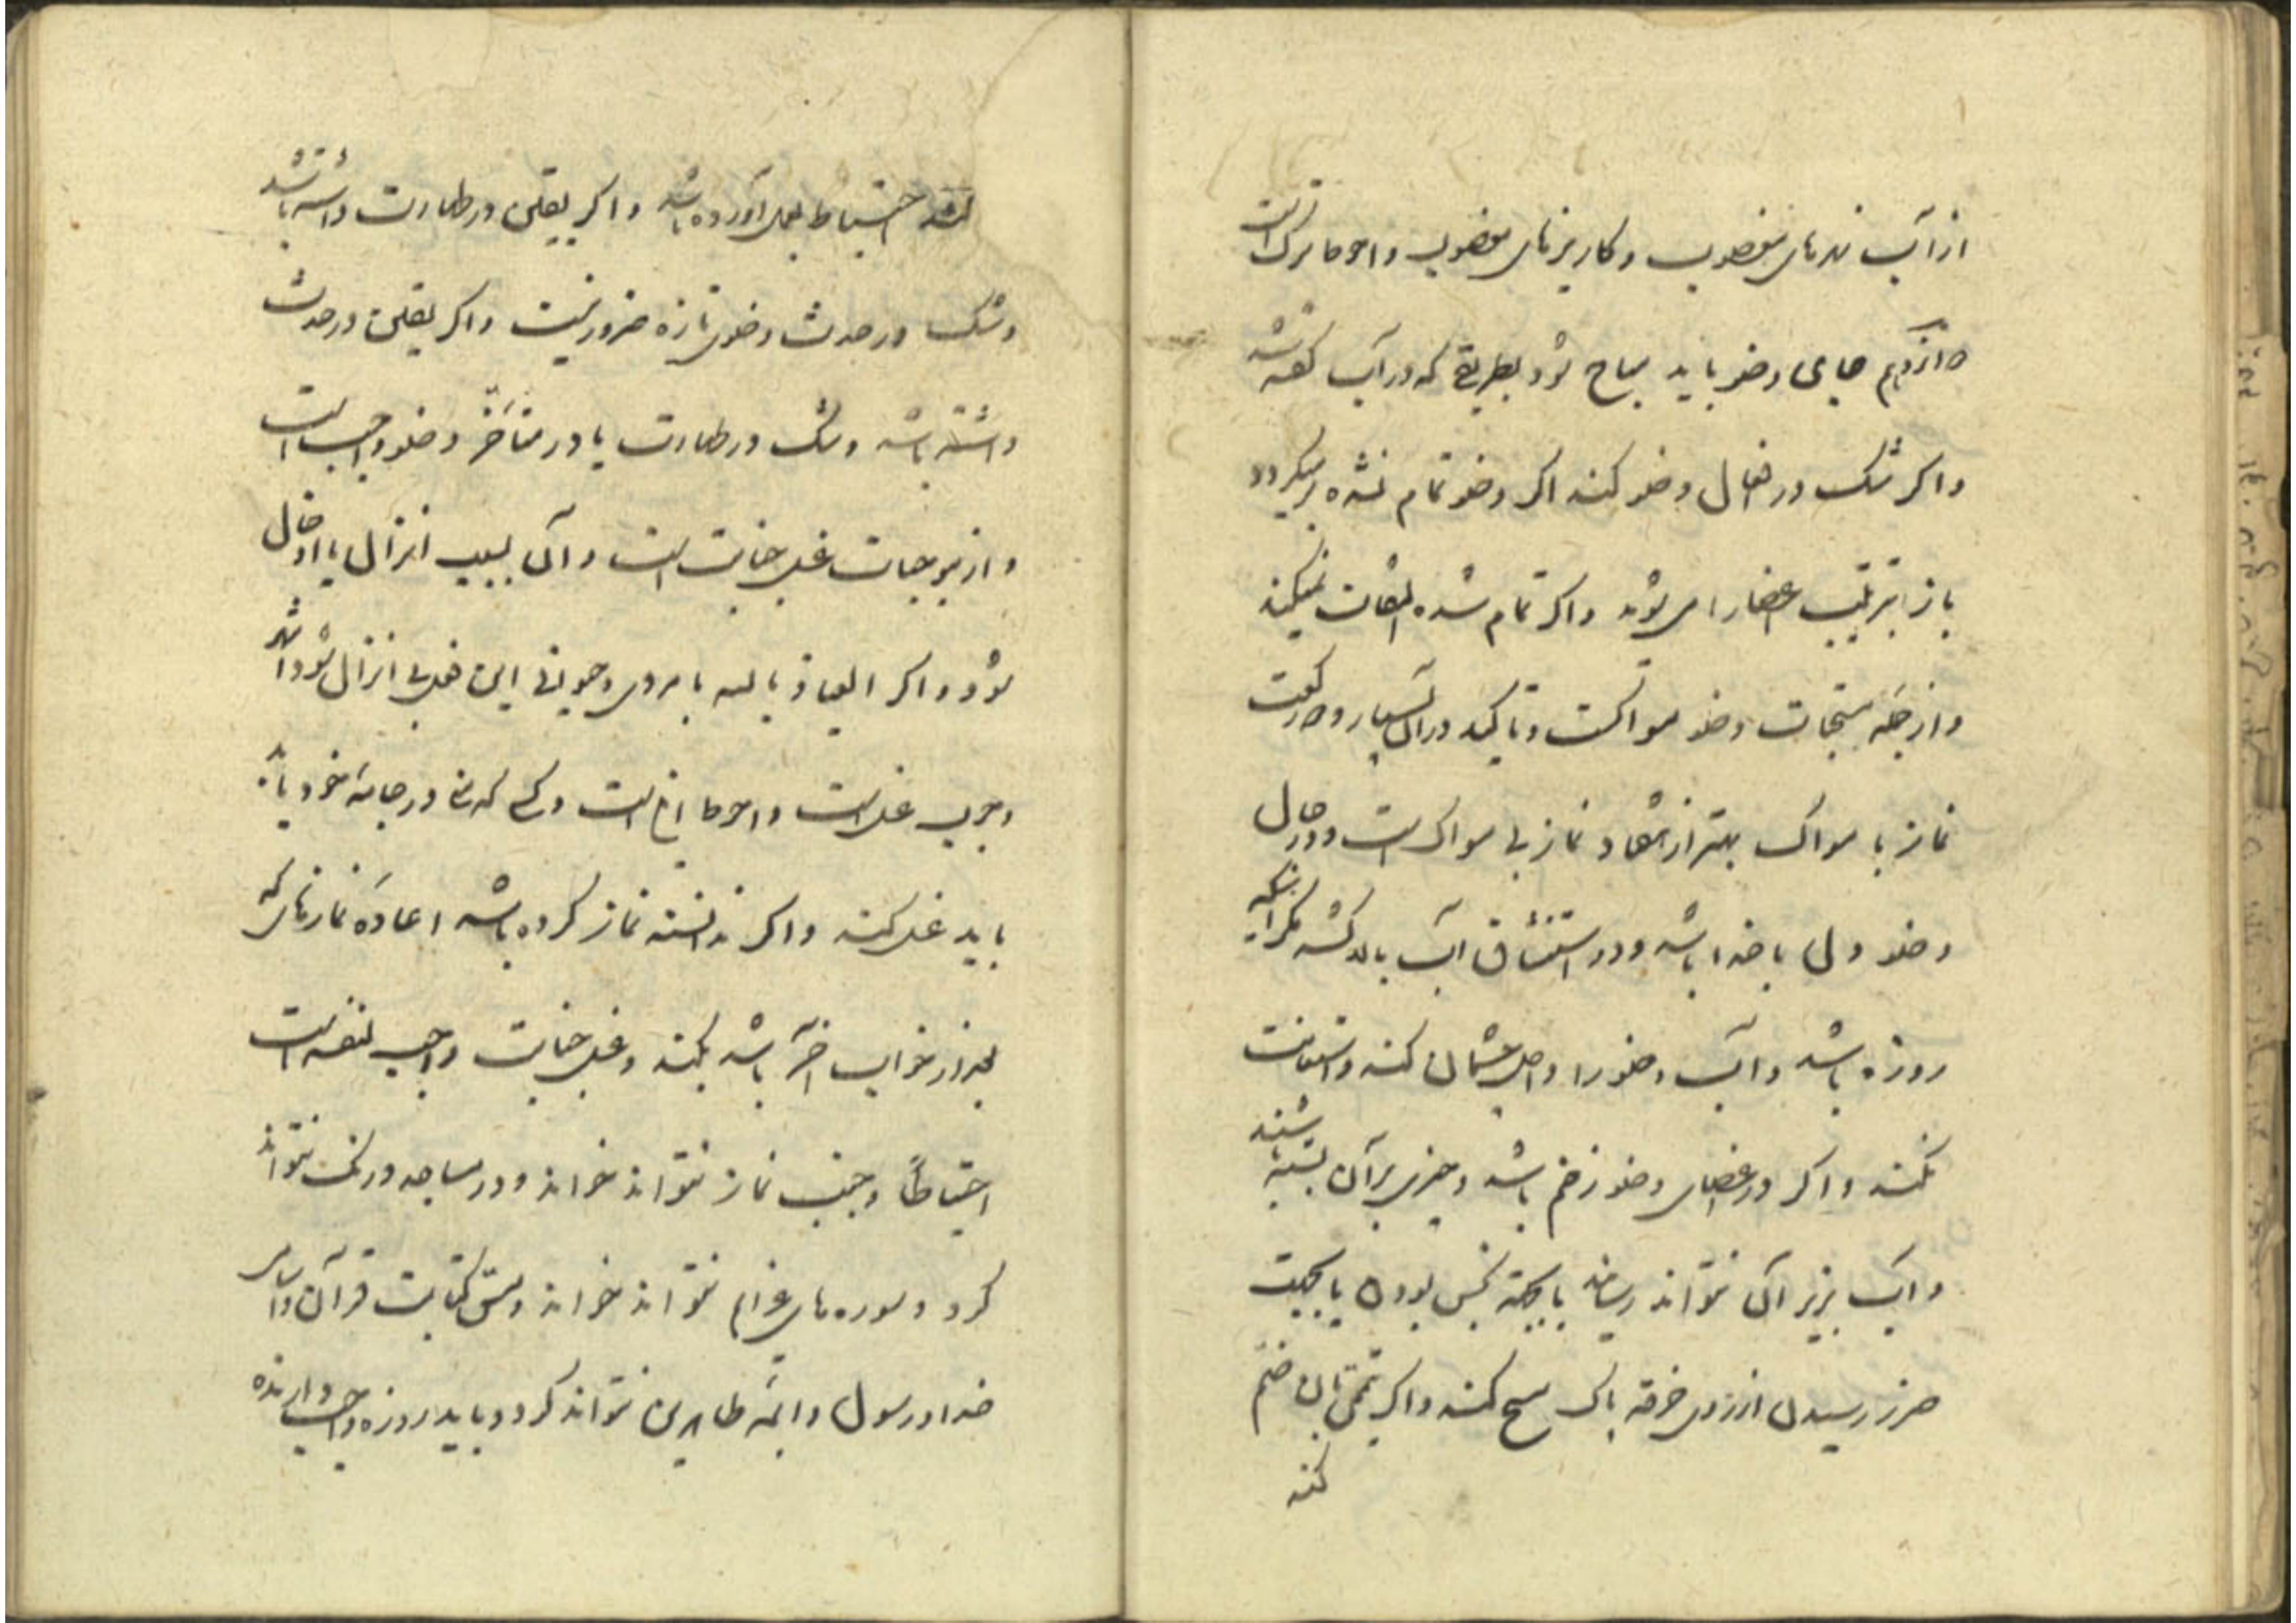 از آب نهرهای مغصوب و کاریزهای مغصوب و احوط ترک است
دوازدهم جای وضو باید مباح بود بطریقی که در آب گفته شد
و اگر شک در افعال وضو کند اگر وضو تمام نشده برمیگردد
باز بترتیب اعضا را می شوید و اگر تمام شده التفات نمیکند
و از جمله مستحبات وضو مسواکست و تاکید در آن بسیار و دو رکعت
نماز با مسواک بهتر از هفتاد نماز بی مسواک است و در حال
وضو دل با خدا باشد و در استنشاق آب بالا کشد مگر اینکه
روزه باشد و آب وضو را داخل چشمان کند و استعانت
نکند و اگر در اعضای وضو زخم باشد و چیزی بر آن بسته باشند
و آب بزیر آن نتواند رسانید یا بجهة نجس بودن یا بجهت
ضرر رسیدن از روی خرقه پاک مسح کند و اگر تیمّمی بآن ضم
کند
کند احتیاط بعمل آورده باشد و اگر یقین در طهارت داشته باشد
و شک در حدث وضوی تازه ضرور نیست و اگر یقین در حدث
داشته باشد و شک در طهارت یا در متأخّر وضو واجب است
و از موجبات غسل جنابت است و آن بسبب انزال یا ادخال
شود و اگر العیاذ بالله با مردی و حیوانی این فعل بی انزال شود اشهر
وجوب غسل است و احوط است و کسی که منی در جامهٔ خود یابد
باید غسل کند و اگر ندانسته نماز کرده باشد اعادهٔ نمازهائی که
بعد از خواب آخر باشد بکند و غسل جنابت واجب لنفسه است
احتیاطاً و جنب نماز نتواند خواند و در مساجد درنگ نتواند
کرد و سوره های عزائم نتواند خواند و مس کتابت قرآن و اسامی
خدا و رسول و ائمّه طاهرین نتواند کرد و باید روزه واجب دارنده